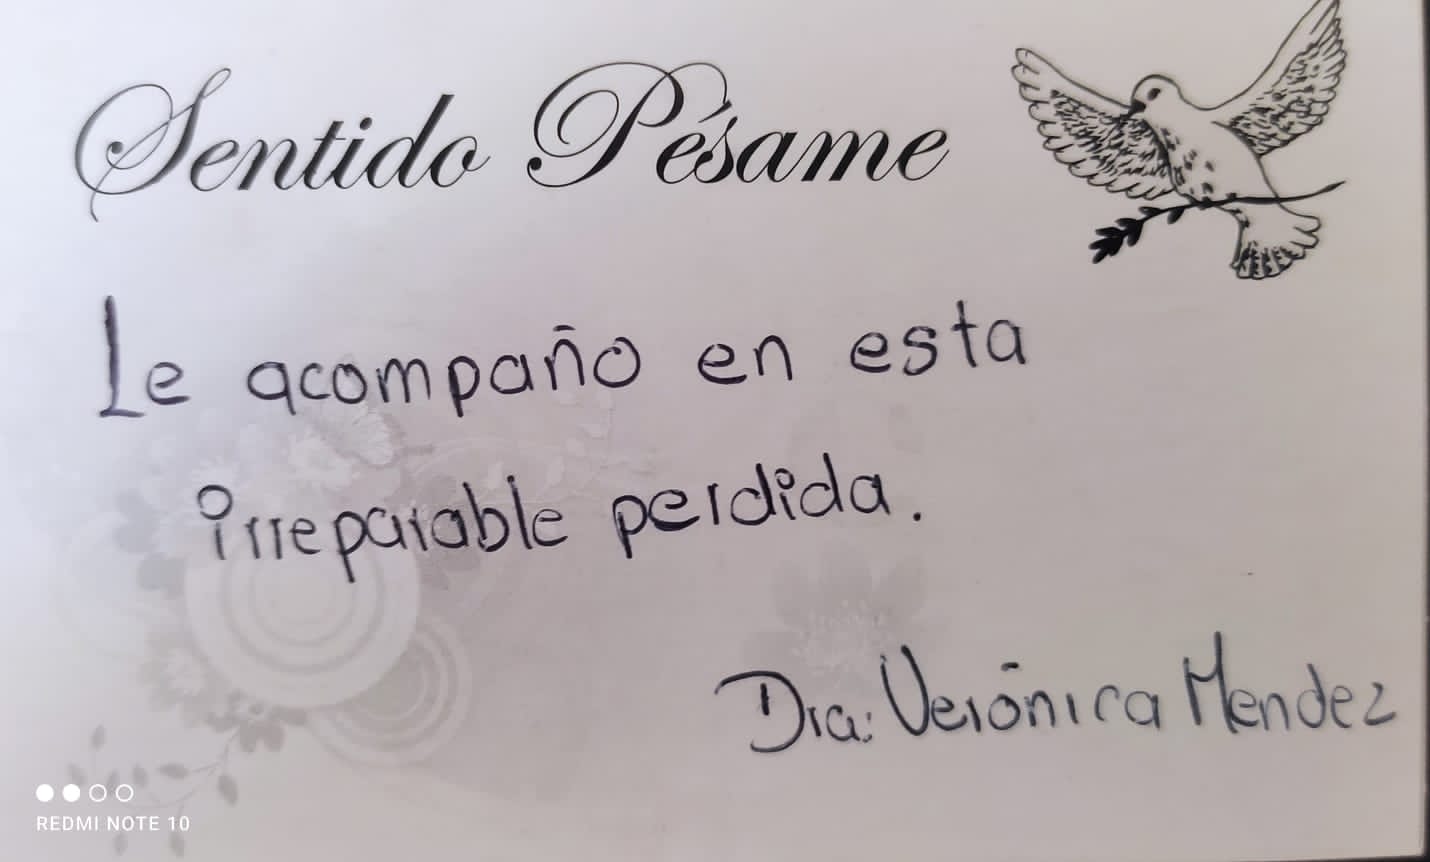 Sentido Pésame
Le acompaño en esta
irreparable perdida.
Dra: Verónica Mendez
REDMI NOTE 10